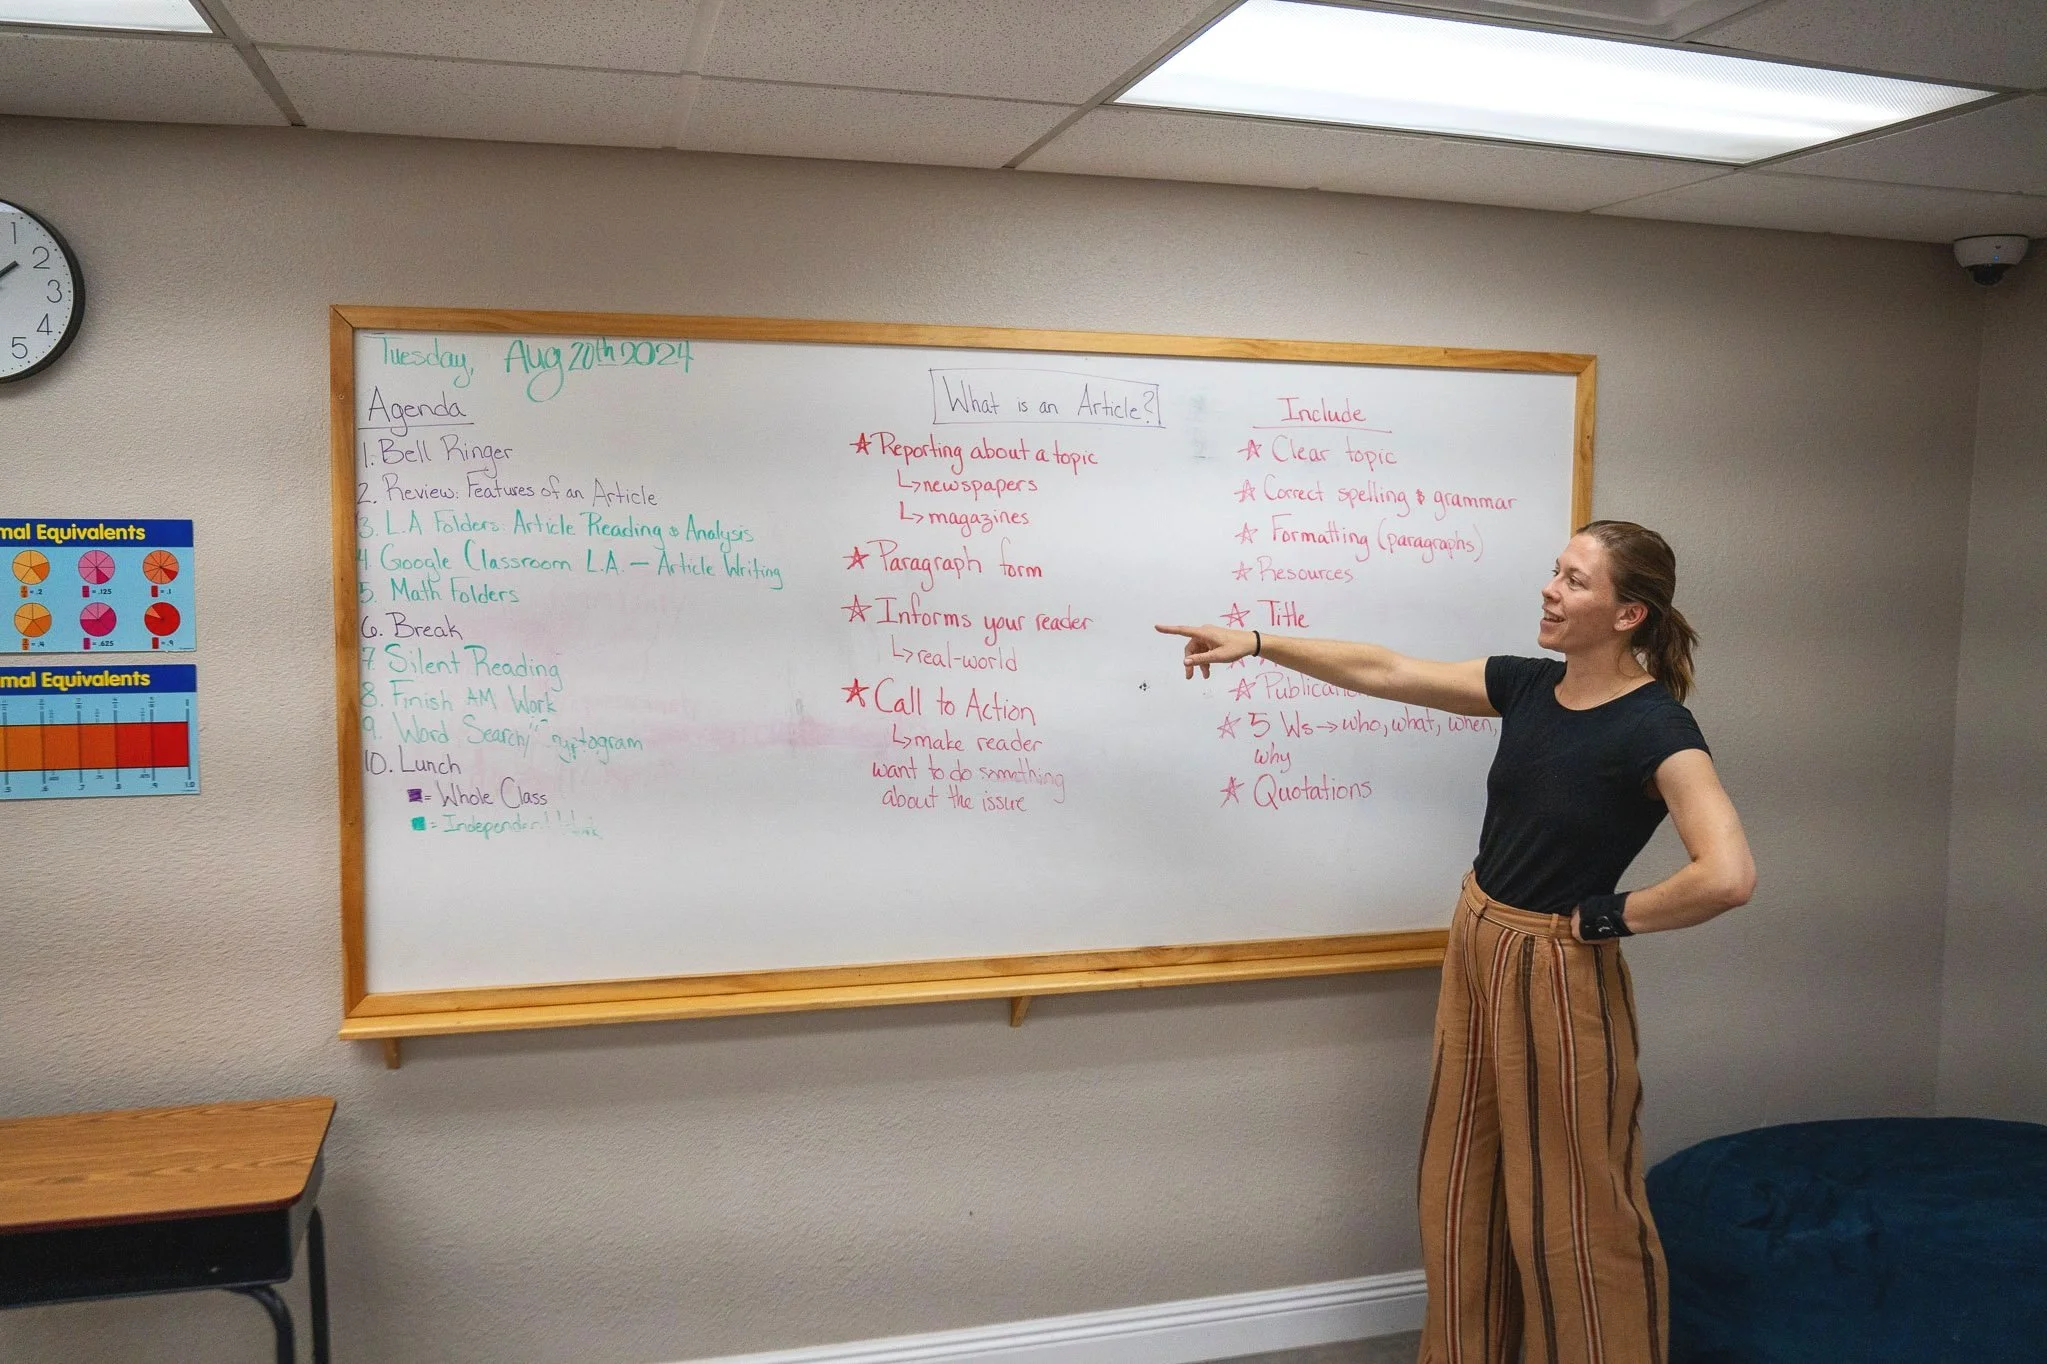 Tuesday, Aug 20th 2024
Agenda
1. Bell Ringer
2. Review: Features of an Article
3. L.A Folders: Article Reading & Analysis
4. Google Classroom L.A. — Article Writing
5. Math Folders
6. Break
7. Silent Reading
8. Finish AM Work
9. Word Search/Cryptogram
10. Lunch
= Whole Class
= Independent
What is an Article?
☆ Reporting about a topic
↳ newspapers
↳ magazines
☆ Paragraph form
☆ Informs your reader
↳ real-world
☆ Call to Action
↳ make reader
want to do something
about the issue
Include
☆ Clear topic
☆ Correct spelling & grammar
☆ Formatting (paragraphs)
☆ Resources
☆ Title
☆ 5 Ws → who, what, when,
why
☆ Quotations
1
2
3
4
5
mal Equivalents
= .2
= .125
= .1
= .4
= .625
= .9
mal Equivalents
.5
.6
.7
.8
.9
1.0